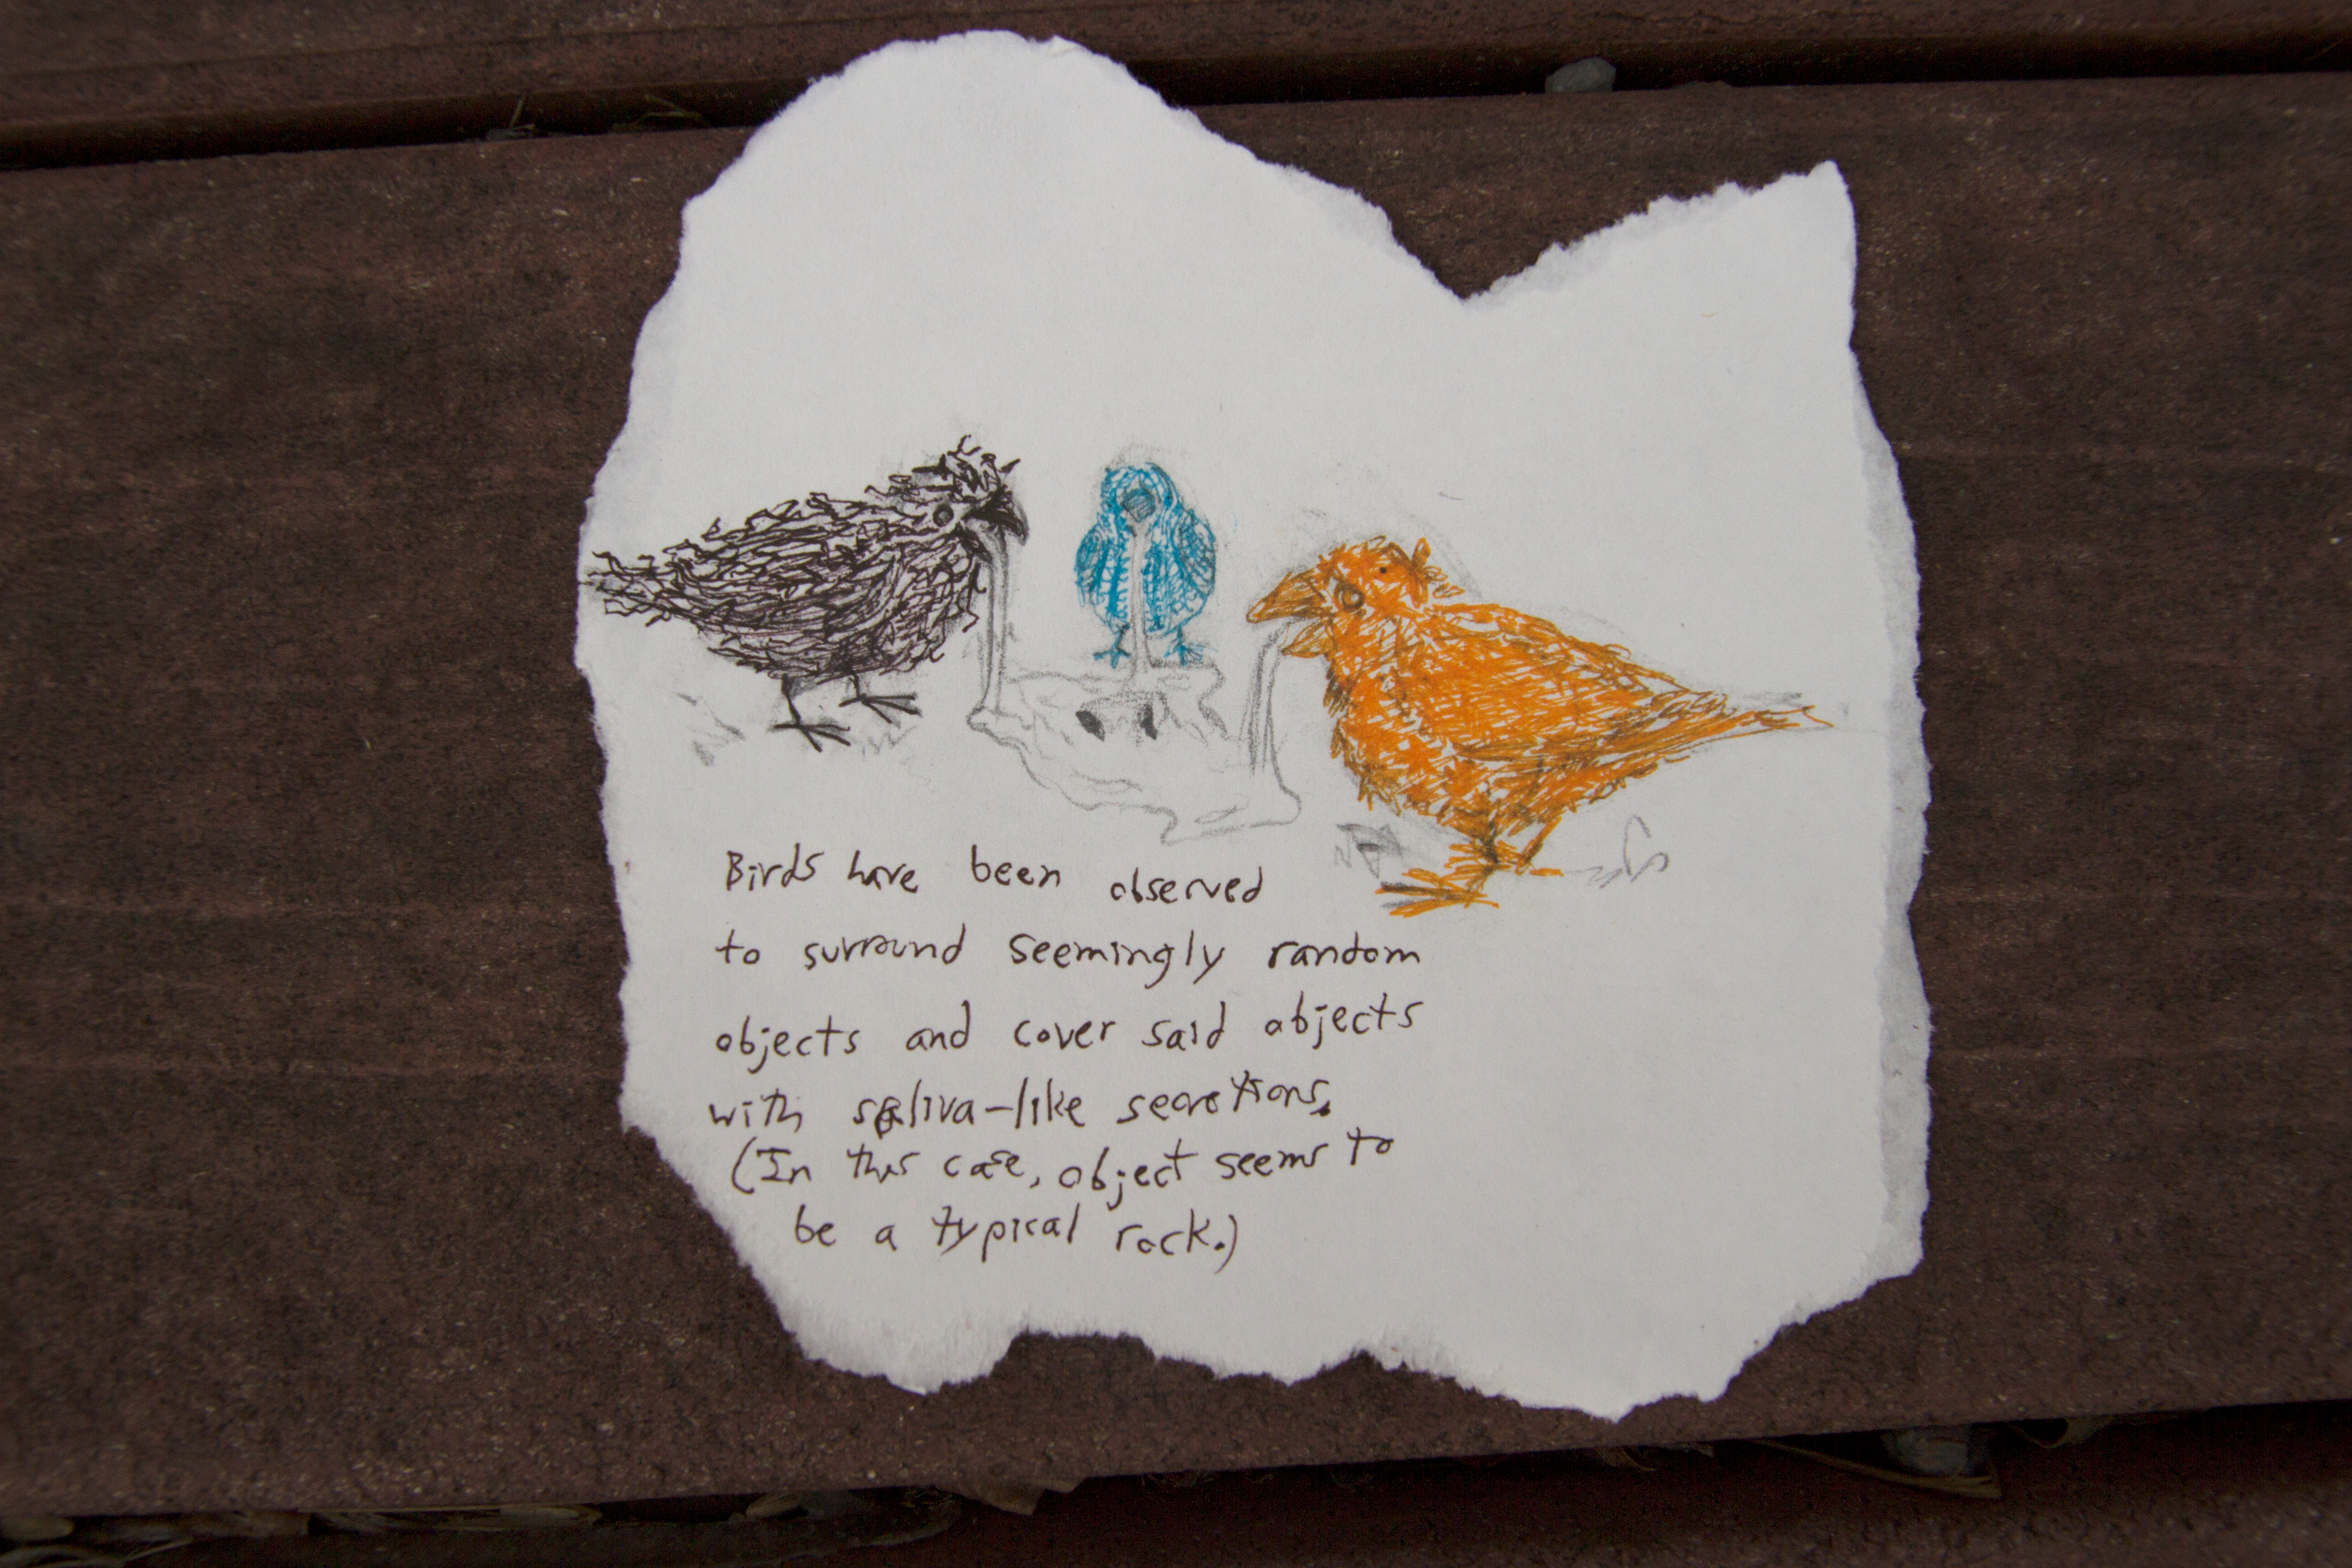 Birds have been observed
to surround seemingly random
objects and cover said objects
with saliva-like secretions.
(In this case, object seems to
be a typical rock.)